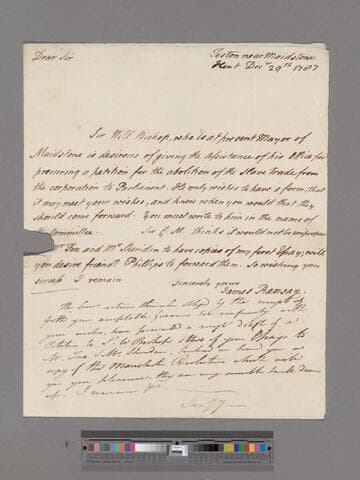 Dear Sir
Teston near Maidstone
Kent Decr 29th 1787
Sir Will Bishop, who is at present Mayor of
Maidstone is desirous of giving the assistance of his office for
procuring a petition for the abolition of the Slave trade from
the corporation to Parliament. He only wishes to have a form, that
it may meet your wishes, and know when you would that they
should come forward. You must write to him in the name of
Committee. Sir C. M. thinks it would not be improper
Mr Fox and Mr Sheridan to have copies of my first Essay; will
you desire friend Phillips to forward them. So wishing you
success I remain
Sincerely yours
James Ramsay.
The
both your acceptable favours
have forwarded a rough draft of a
Petition to Sr W. Bishop & two of your Essays to
Mr. Fox & Mr. Sheridan, send you a
copy of the Manchester Resolutions which will
give you pleasure, they
of. I remain